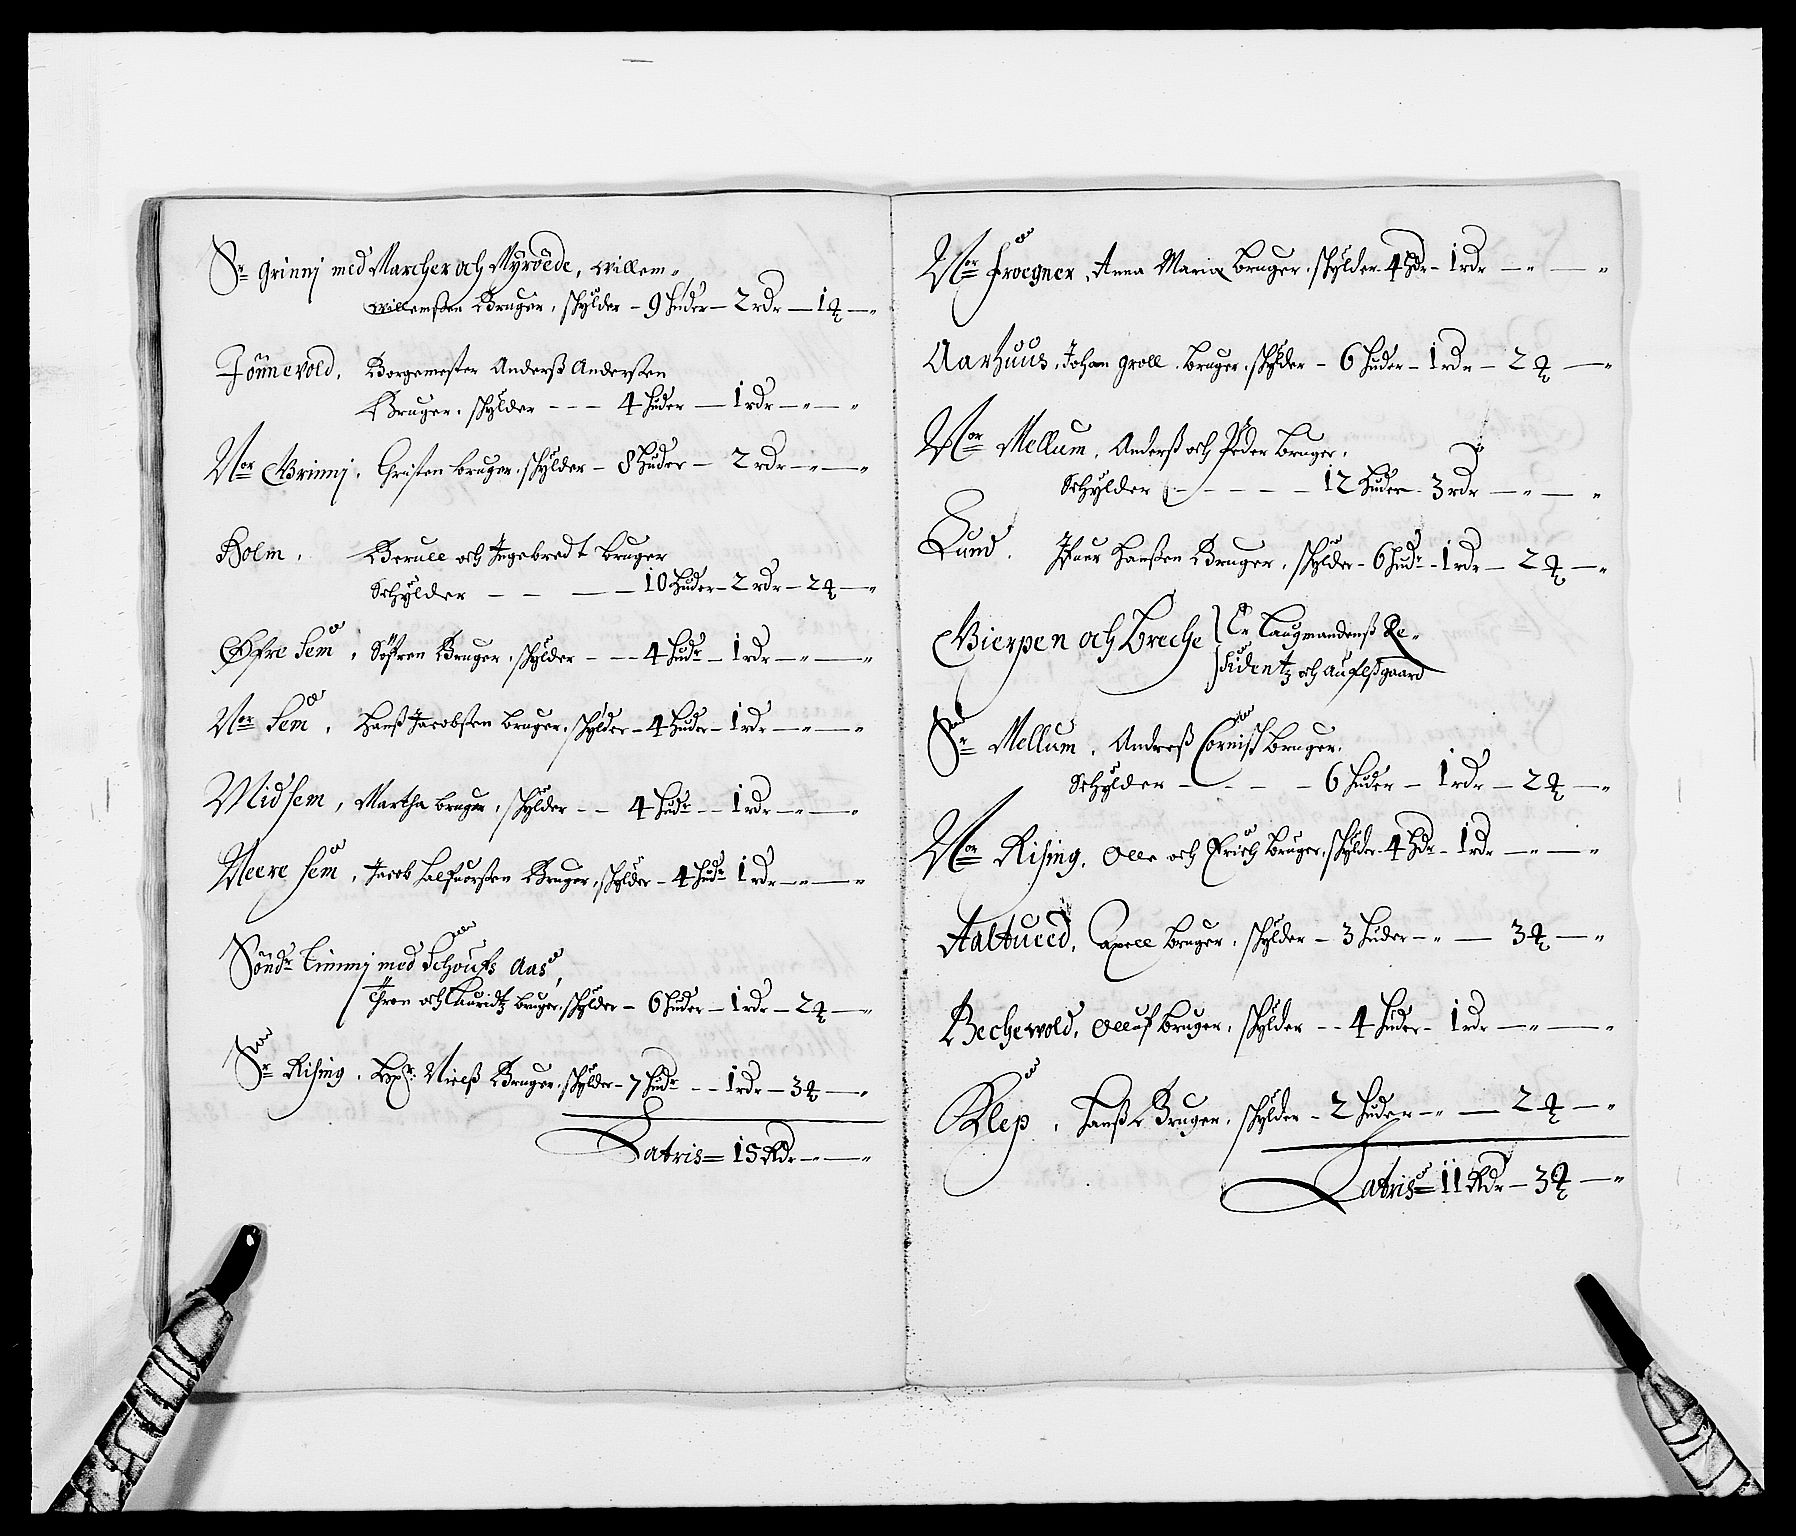 Sr Grinnj med Marcher och Myröede, Willem-
Willemßen Bruger, schylder - 9 huder - 2 rdr - 1 ꝗ - "
Jönnevold, Borgemester Anderß Anderßen
Bruger, schylder - - - 4 huder - 1 rdr - " - "
Nor Grinnj, Christen bruger, schylder - 8 huder - 2 rdr - " - "
Holm, och Ingebredt bruger
Schylder - - - - 10 huder - 2 rdr - 2 ꝗ - "
Øfre Sem, Söfren Bruger, schylder - - 4 hudr - 1 rdr - " - "
Nor Sem, Hanß Jacobsen bruger, schylder - 4 huder - 1 rdr - " - "
Midsem, Martha bruger, schylder - - 4 hudr - 1 rdr - " - "
Neere Sem, Jacob Halfuorßen Bruger, schylder - 4 hudr 1 rdr - " - "
Söndr Timmj med Schoufs Aas,
Tron och Lauridtz bruger, schylder - 6 huder - 1 rdr - 2 ꝗ - "
Sr Rising, Hr: Nielß Bruger, schylder - 7 hudr - - 1 rdr - 3 ꝗ - "
Latris = 15 Rdr - " - "
Nor Froegner, Anna Maria bruger, schylder 4 hdr - 1 rdr - " - "
Aarhuus, Johan Groll, bruger, schylder - 6 huder - 1 rdr - 2 ꝗ - "
Nor Mellum, Anderß och Peder bruger,
Schylder - - - - - 12 huder - 3 rdr - " - "
Lund, Hanßen Bruger, schylder - 6 hudr - 1 rdr - 2 ꝗ - "
Bierpen och Breche Er Laugmandenß Re-
sidentz och auflßgaard
Sr Mellum, Andreß Cornisch bruger,
Schylder - - - - 6 huder - 1 rdr - 2 ꝗ - "
Nor Rising, Olle och Erich bruger, schylder 4 hdr - 1 rdr - " - "
Aaltueed, Axell bruger, schylder - 3 huder - " - 3 ꝗ - "
Bechevold, Olluf bruger, schylder - - 4 huder - 1 rdr - " - "
Klep, Hanß Bruger, schylder - 2 huder - " - 2 ꝗ - "
Latris = 11 Rdr - 3 ꝗ - "